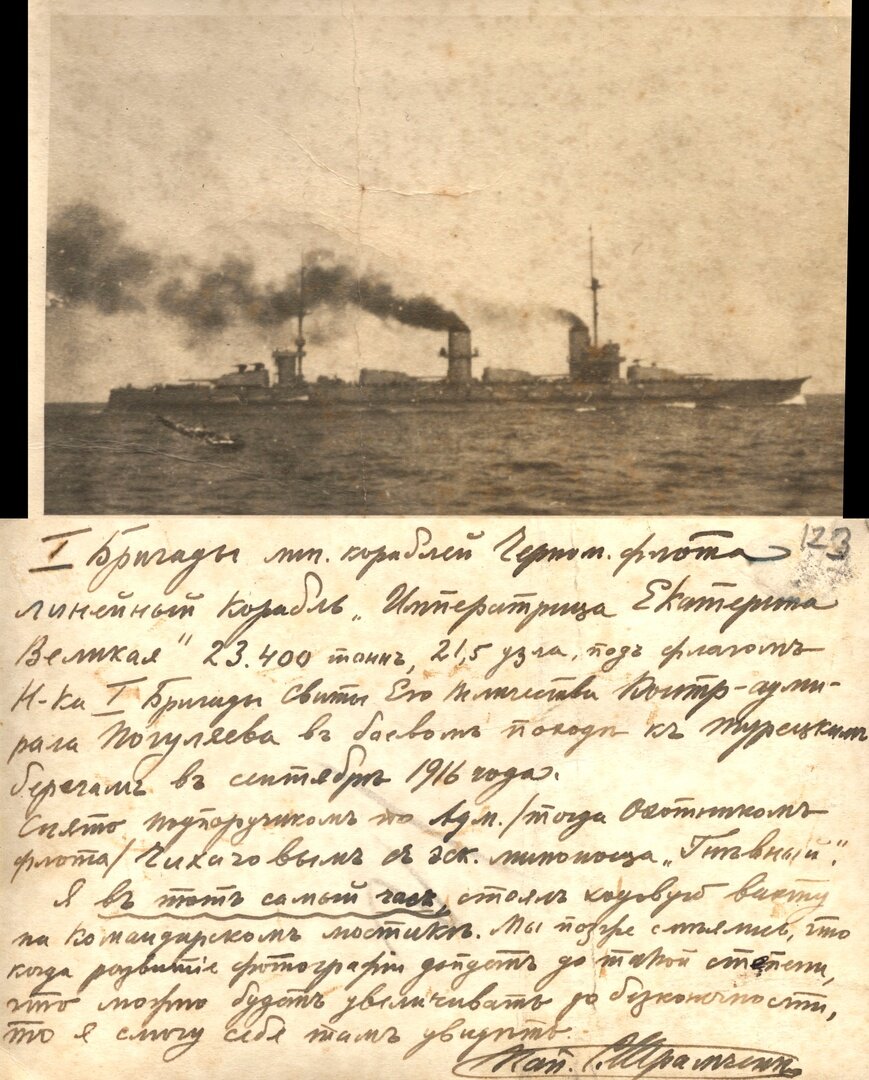 I Бригады лин. кораблей Черном. флота
123
линейный корабль „Императрица Екатерина
Великая" 23.400 тоннъ, 21,5 узла, подъ флагомъ
Н-ка I Бригады Свиты Его Величества Контр-адми-
рала Погуляева въ боевомъ походѣ къ турецкимъ
берегамъ въ сентябрѣ 1916 года.
Снято подпоручикомъ по Адм. /тогда Охотникомъ
флота/ Чихачовымъ съ эск. миноносца „Гнѣвный".
Я въ тотъ самый часъ, стоялъ ходовую вахту
на командирскомъ мостикѣ. Мы позже смѣялись, что
когда развитiе фотографiи дойдетъ до такой степени,
что можно будетъ увеличивать до безконечности,
то я смогу себя тамъ увидѣть.
Кап. С. Шрамченко